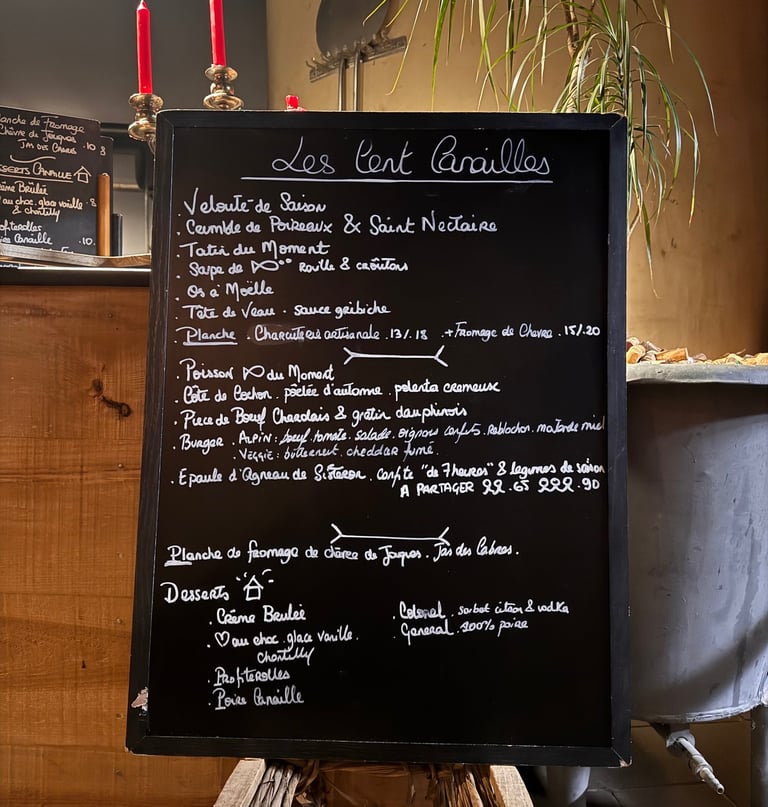 anche de Fromage
Chèvre de Jouques
Jas des Cabres .10
SSERTS CANAILLE
ème Brûlée
au choc. glace vanille .8
& chantilly
ofiterolles
oire Canaille .10.
Les Cent Canailles
. Velouté de Saison
. Crumble de Poireaux & Saint Nectaire
. Tatin du Moment
. Soupe de rouille & croûtons
. Os à Moëlle
. Tête de Veau . sauce gribiche
. Planche . Charcuterie artisanale . 13/.18 . + Fromage de Chèvre . 15/.20
. Poisson du Moment
. Côte de Cochon . poêlée d'automne . polenta cremeuse
. Pièce de Boeuf Charolais & gratin dauphinois
. Burger . Alpin : boeuf. tomate. salade. oignons confits. Reblochon. moutarde miel
. Veggie : butternut. cheddar fumé.
. Epaule d'Agneau de Sisteron . Confite "de 7 heures" & légumes de saison
A PARTAGER 22 . 65 222 . 90
Planche de fromage de chèvre de Jouques . Jas des Cabres .
Desserts
. Crème Brulée
. au choc. glace vanille.
chantilly
. Profiterolles
. Poire Canaille
. Colonel . sorbet citron & vodka
. General . 100% poire